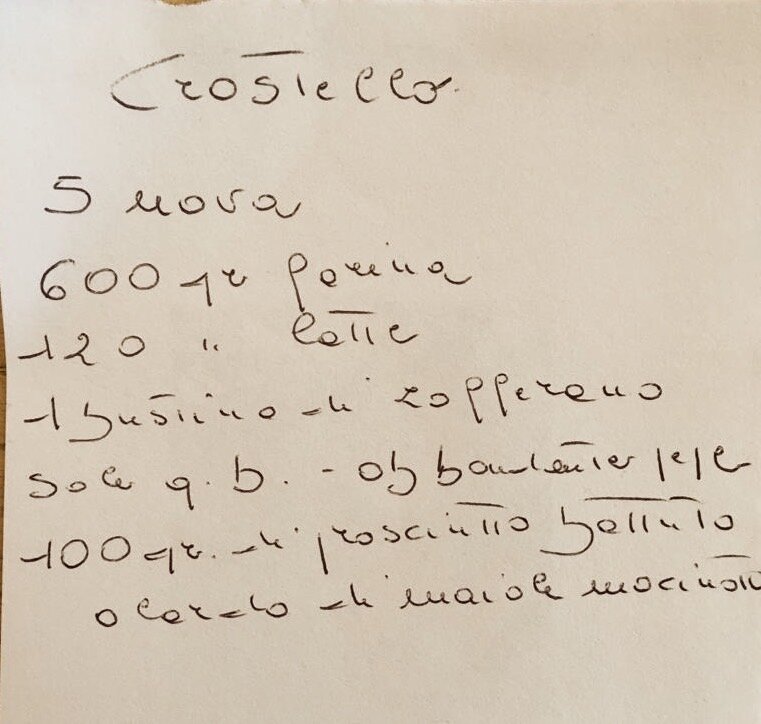 Crostello
5 uova
600 gr farina
120 " latte
1 bustino di zafferano
sale q.b. - abbondante pepe
100 gr. di prosciutto battuto
o lardo di maiale macinato